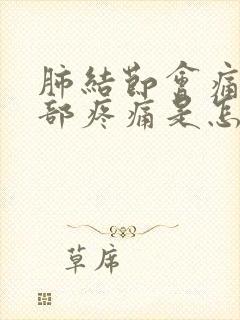 肺結節會痛
部疼痛是怎
草席